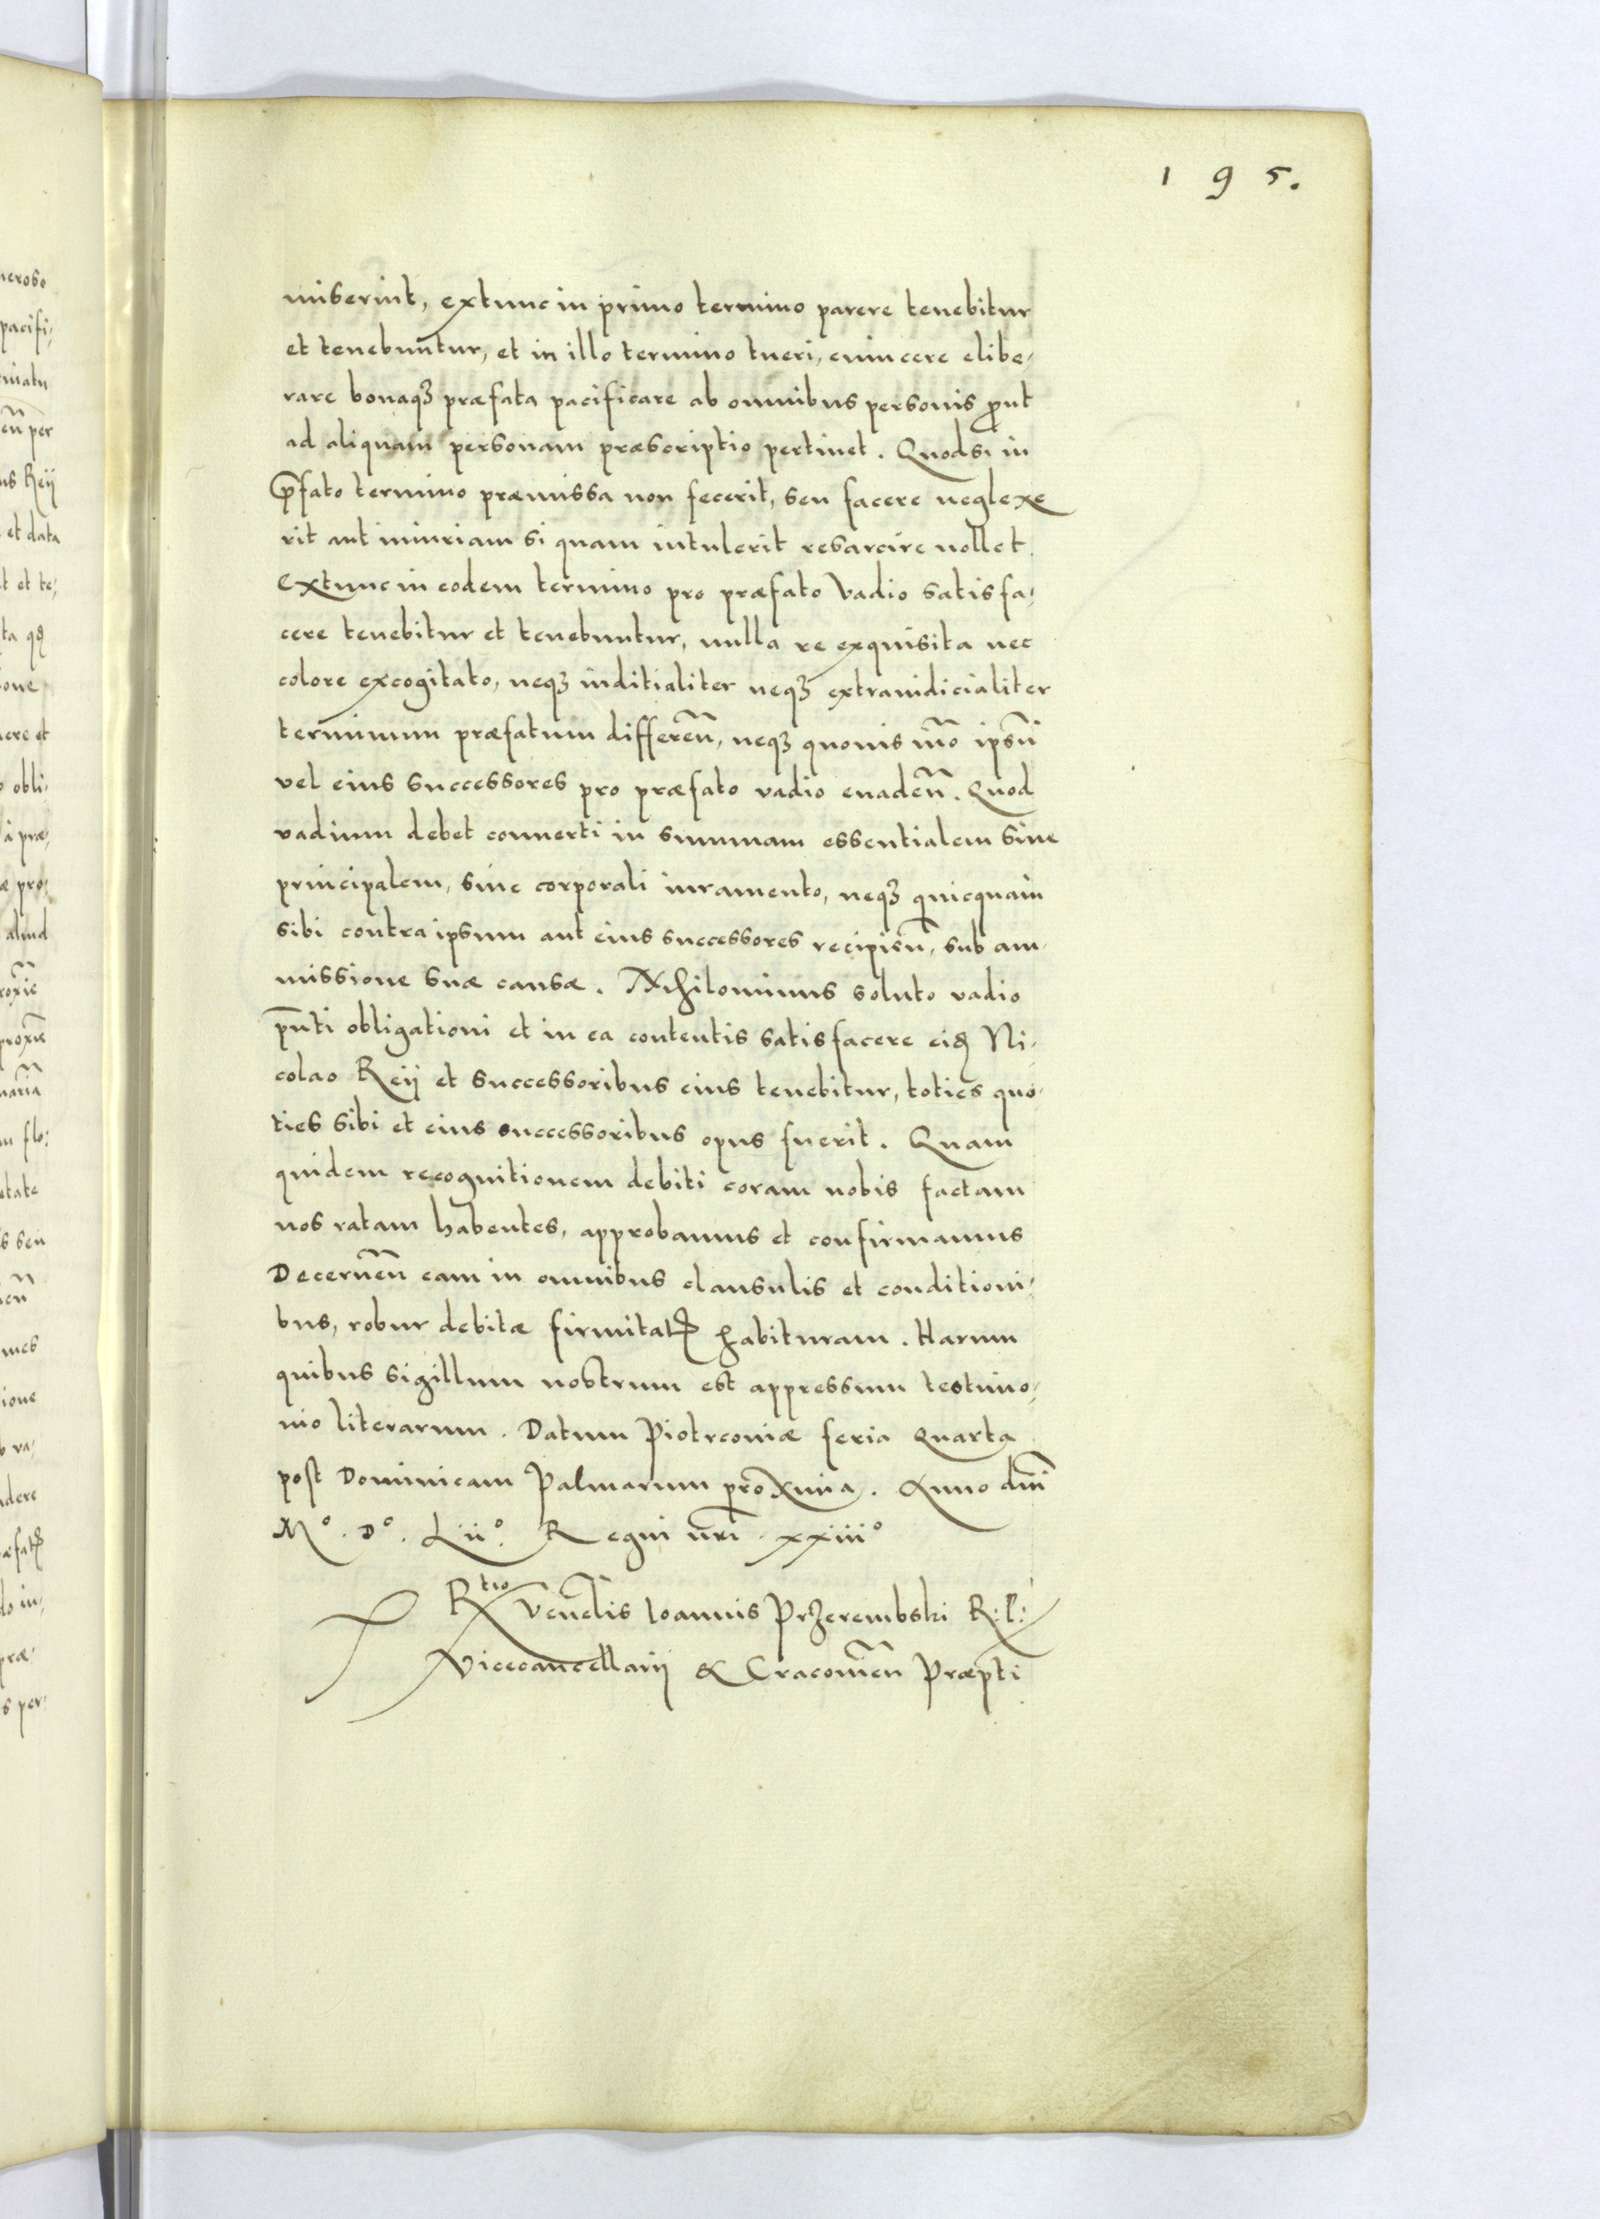 195.
miserint, extunc in primo termino parere tenebitur
et tenebuntur, et in illo termino tueri, euincere elibe,
rare bonaqȝ præfata pacificare ab omnibus personis ꝓut
ad aliquam personam præscriptio pertinet. Quodsi in
p̄fato termino præmissa non fecerit, seu facere neglexe
rit aut iniuriam si quam intulerit resarcire nollet.
Extunc in eodem termino pro præfato vadio satisfa,
cere tenebitur et tenebuntur, nulla re exquisita nec
colore excogitato, neqȝ iuditialiter neqȝ extraiudicialiter
terminum præfatum differen̄, neqȝ quouis mo͞ ipsū
vel eius successores pro præfato vadio euaden̄. Quod
vadium debet conuerti in summam essentialem siue
principalem, sine corporali iuramento, neqȝ quicquam
sibi contra ipsum aut eius successores recipien̄, sub am,
missione suæ causæ. Nihilominus soluto vadio
pn̄ti obligationi et in ea contentis satisfacere eiꝫ Ni,
colao Reij et successoribus eius tenebitur, toties quo,
ties sibi et eius successoribus opus fuerit. Quam
quidem recognitionem debiti coram nobis factam
nos ratam habentes, approbamus et confirmamus
Decernen̄ eam in omnibus clausulis et conditioni,
bus, robur debitæ firmitatꝭ habituram. Harum
quibus sigillum nostrum est appressum testimo,
nio literarum. Datum Piotrcouiæ feria quarta
post Dominicam Palmarum proxima. Anno dn̄i
Mº. Dº. Liiº. Regni nr̄i xxiiiº
Rtio Ven̄dis Ioannis Przerembski R: P:
Vicecancellarij & Cracouien̄ Præpti